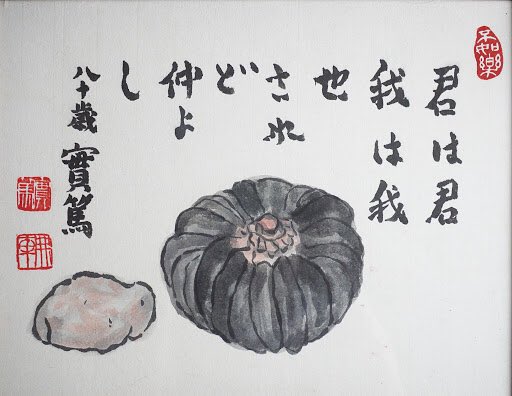 不如樂
君は君
我は我
也
され
ど
仲よ
し
八十歳 實篤